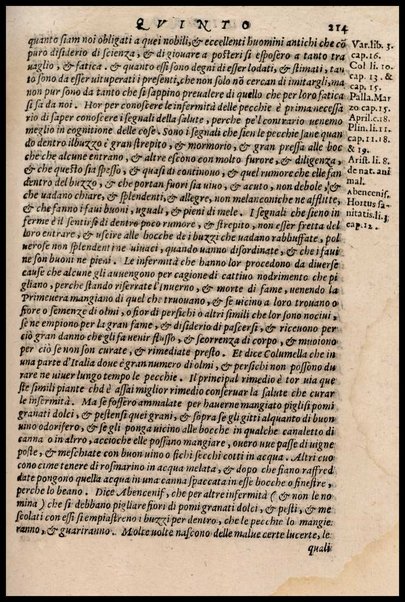 QVINTO 214
quanto siam noi obligati a quei nobili, & eccellenti huomini antichi che cõ
puro disiderio di scienza, & di giouare a posteri si esposero a tanto tra
uaglio, & fatica. & quanto essi sono degni di esser lodati, & stimati, tan
to sono da esser uituperati i presenti, che non solo nõ cercan di imitargli, ma
non pur sono da tanto che si sappino preualere di quello che per loro fatica
si sa da noi. Hor per conoscere le infermità delle pecchie è prima necessa
rio di saper conoscere i segnali della salute, perche pe'l contrario uenemo
meglio in cognitione delle cose. Sono i segnali che sien le pecchie sane quan
do dentro il buzzo è gran strepito, & mormorio, & gran pressa alle boc
che che alcune entrano, & altre escono con molto furore, & diligenza,
& che questo sia spesso, & quasi di continuo, & quel rumore che elle fan
dentro del buzzo, & che portan fuori sia uiuo, & acuto, non debole, &
che uadano chiare, & splendenti, & allegre, non melanconiche ne afflitte,
& che fanno i faui buoni, uguali, & pieni di mele. I segnali che sieno in
ferme è il sentirsi di dentro poco rumore, & strepito, non esser fretta del
loro entrare, & uscire alle bocche de i buzzi che uadano rabbuffate, pol
uerose non splendenti ne uiuaci, quando uanno disordinate, & che i faui
ne son buoni ne pieni. Le infermità che hanno lor procedono da diuerse
cause che alcune gli auuengono per cagione di cattiuo nodrimento che pi
gliano, perche stando riserrate l'inuerno, & morte di fame, uenendo la
Primeuera mangiano di quel che truouano, & se uicino a loro trouano o
fiore o semenze di olmi, o fior di persichi o altri simili che lor sono nociui,
se ne empiono per la gran fame, & disiderio di pascersi, & riceuono per
ciò gran danno che gli fa uenir flusso, & scorrenza di corpo, & muoiono
per ciò se non son curate, & rimediate presto. Et dice Columella che in
una parte d'Italia doue è gran numero di olmi, & persichi non possono du
rare ne uiuer lungo tempo le pecchie. Il principal rimedio è tor uia que
ste simili piante chè è assai miglior rimedio conseruar la salute che curar
le infermità. Ma se fossero ammalate per hauerne mangiato piglisi pomi
granati dolci, & pestensi quei grani, & sopra se gli gitti alquanto di buon
uino odorifero, & se gli ponga uicino alle bocche in qualche canaletto di
canna o in altro, accioche elle possano mangiare, ouero uue passe di uigne
poste, & meschiate con buon uino o fichi secchi cotti in acqua. Altri cuo
cono cime tenere di rosmarino in acqua melata, & dopo che siano raffred
date pongono quella acqua in una canna spaccata in esse bocche o finestre,
perche lo beano. Dice Abencenif, che per altre infermità (& non le no
mina) che si debbano pigliare fiori di pomi granati dolci, & pesti, & me
scolati con essi si empiastreno i buzzi per dentro, che le pecchie lo mangie
ranno, & guariranno. Molte uolte nascono delle malue certe lucerte, le
quali
Var. lib. 3.
cap. 16.
Col li. 10.
cap. 13. &
cap. 15.
Palla. Mar
zo cap. 15.
April. c. 18.
Plin. li. 11.
cap. 11. 18.
& 19.
Arist. li. 8.
de nat. ani
mal.
Abencenif.
Hortus sa-
nitatis. li. 3
cap. 12.